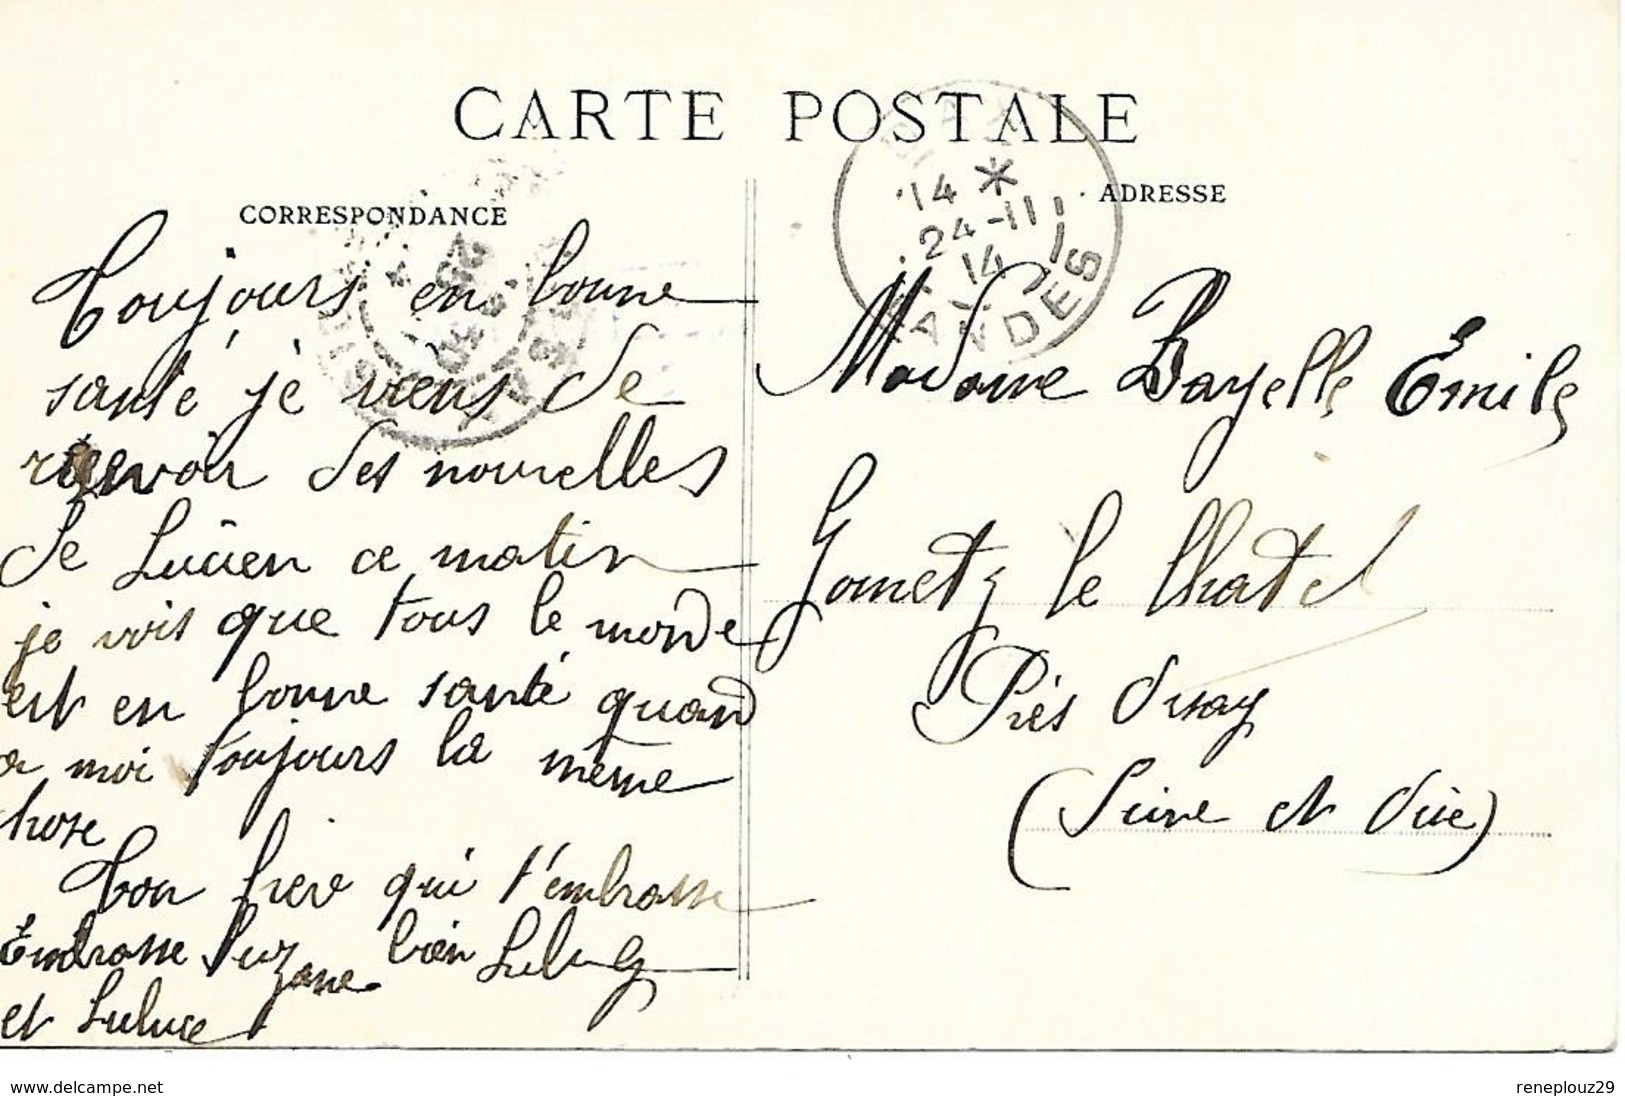 CARTE POSTALE
CORRESPONDANCE
Toujours en bonne
santé je viens de
recevoir des nouvelles
de Lucien ce matin
je vois que tous le monde
est en bonne santé quand
a moi toujours la même
chose
Ton frere qui t'embrasse
Embrasse Suzane bien
et Lulure
14 *
24-11
14
LANDES
ADRESSE
Madame Bayelle Emile
Gometz le Chatel
Près Orsay
(Seine et Oise)
www.delcampe.net
reneplouz29